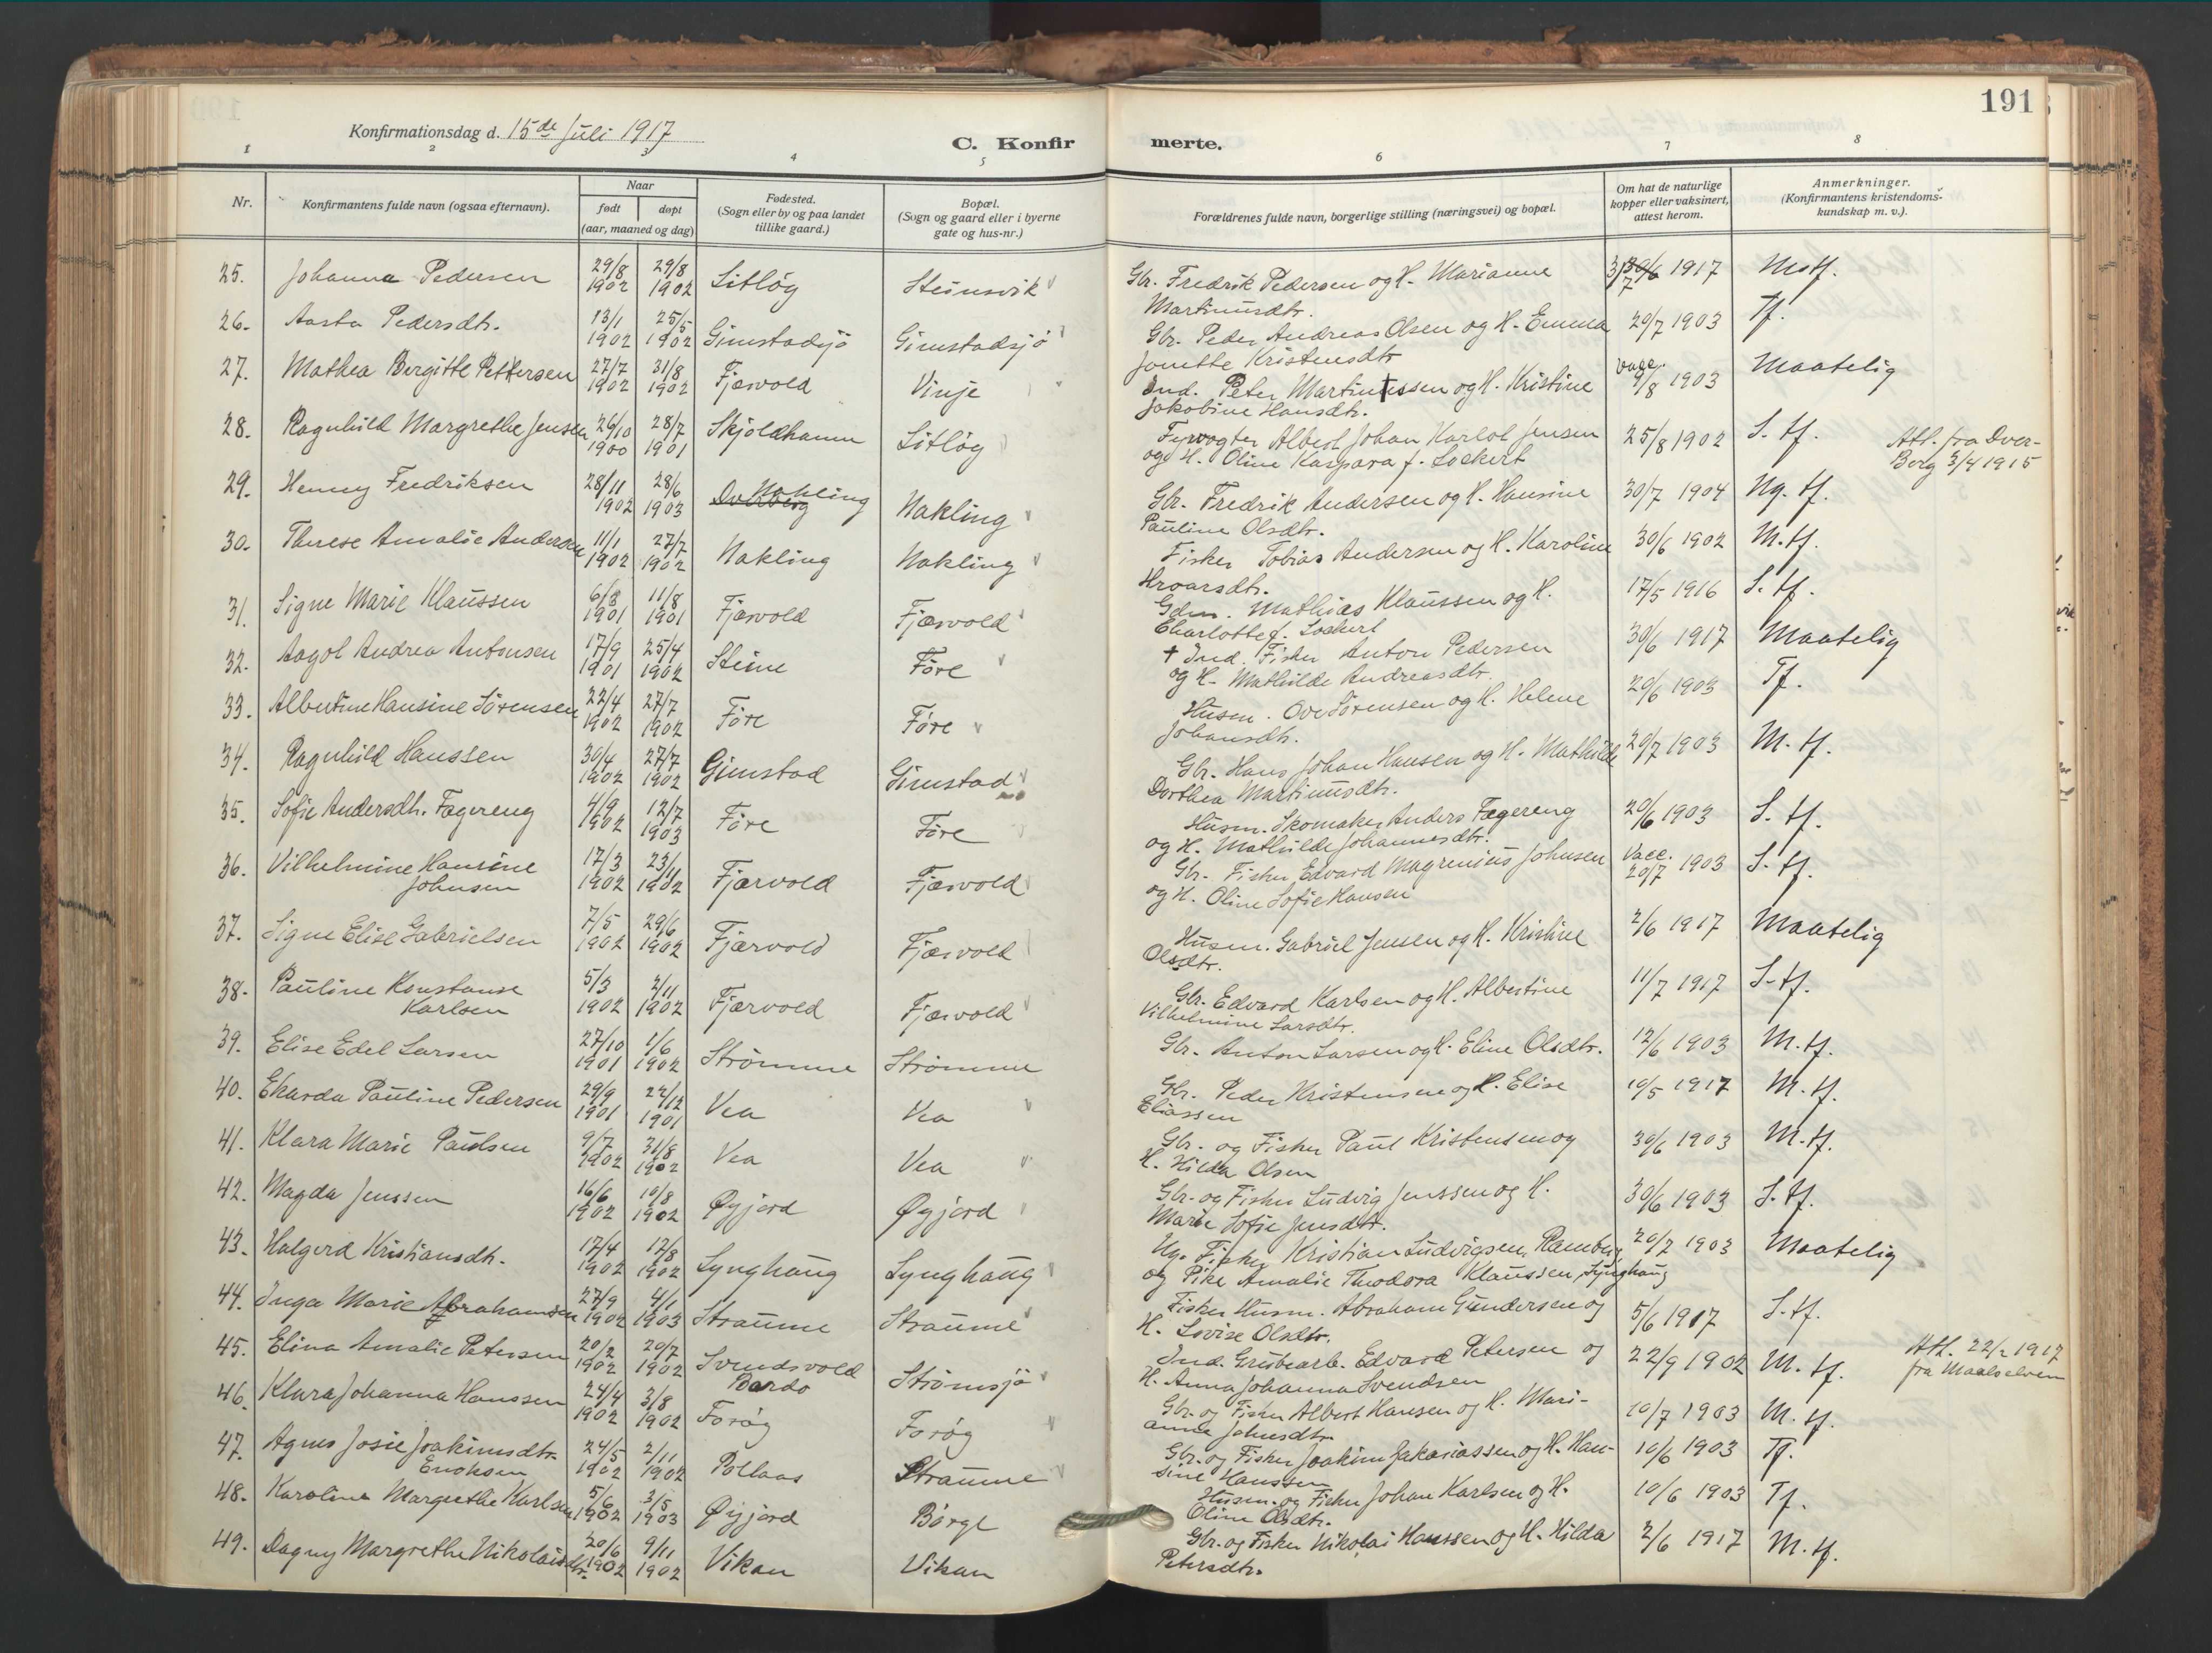 191
Konfirmationsdag d. 15de Juli 1917
C. Konfir
merte.
1 2 3 4 5 6 7 8
Nr.
Konfirmantens fulde navn (ogsaa efternavn).
Naar
født døpt
(aar, maaned og dag)
Fødested.
(Sogn eller by og paa landet
tillike gaard.)
Bopæl.
(Sogn og gaard eller i byerne
gate og hus-nr.)
Forældrenes fulde navn, borgerlige stilling (næringsvei) og bopæl.
Om hat de naturlige
kopper eller vaksinert,
attest herom.
Anmerkninger.
(Konfirmantens kristendoms-
kundskap m. v.).
25. Johanna Pedersen 29/8 1902 29/8 1902 Litløy Steinsvik Gbr. Fredrik Pedersen og H. Marianne
Martinusdtr. 1917 Mtf.
26. Aasta Pedersdtr. 13/1 1902 25/5 1902 Gimstadsjö Gimstadsjö Gbr. Peder Andreas Olsen og H. Emma
Jonette Kristensdtr 20/7 1903 Tf.
27. Mathea Bergitte Pettersen 27/7 1902 31/8 1902 Fjærvold Vinje Ind. Peter Martinussen og H. Kristine
Jakobine Hansdtr. Vacc. 9/8 1903 Maatelig
28. Ragnhild Margrethe Jensen 26/10 1900 28/7 1901 Skjoldhamn Litløy Fyrvogter Albert Johan Karlot Jensen
og H. Oline Kaspara f. Lockert 25/8 1902 S. tf. Att. fra Dver-
Berg 3/4 1915
29. Henny Fredriksen 28/11 1902 28/6 1903 Dverberg Nakling Nakling Gbr. Fredrik Andersen og H. Hansine
Pauline Olsdtr. 30/7 1904 Ng. tf.
30. Therese Amalie Andersen 11/1 1902 27/7 1902 Nakling Nakling Fisker Tobias Andersen og H. Karoline
Hroarsdtr. 30/6 1902 M. tf.
31. Signe Marie Klaussen 6/3 1901 11/8 1901 Fjærvold Fjærvold Gdm. Mathias Klaussen og H.
Charlotte f. Lockert 17/5 1916 S. tf.
32. Aagot Andrea Antonsen 17/9 1901 25/4 1902 Steine Føre + Ind. Fisker Anton Pedersen
og H. Mathilde Andreasdtr. 30/6 1917 Maatelig
33. Albertine Hansine Sörensen 22/4 1902 27/7 1902 Føre Føre Husm. Ove Sørensen og H. Helene
Johansdtr. 20/6 1903 Tf.
34. Ragnhild Hanssen 30/4 1902 27/7 1902 Gimstad Gimstad Gbr. Hans Johan Hansen og H. Mathilde
Dorthea Martinusdtr. 20/7 1903 M. tf.
35. Sofie Andersdtr. Fagereng 4/9 1902 12/7 1903 Føre Føre Husm. Skomaker Anders Fagereng
og H. Mathilde Johannesdtr. 20/6 1903 S. tf.
36. Vilhelmine Hansine
Johnsen 17/3 1902 23/11 1902 Fjærvold Fjærvold Gbr. Fisker Edvard Magrenius Johnsen
og H. Oline Sofie Hansen Vacc. 20/7 1903 S. tf.
37. Signe Elise Gabrielsen 7/5 1902 29/6 1902 Fjærvold Fjærvold Husm. Gabriel Jensen og H. Kristine
Olsdtr. 2/6 1917 Maatelig
38. Pauline Konstanse
Karlsen 5/3 1902 2/11 1902 Fjærvold Fjærvold Gbr. Edvard Karlsen og H. Albertine
Vilhelmine Larsdtr. 11/7 1917 S. tf.
39. Elise Edel Larsen 27/10 1901 1/6 1902 Strömme Strömme Gbr. Anton Larsen og H. Eline Olsdtr. 12/6 1903 M. tf.
40. Ekarda Pauline Pedersen 29/9 1901 22/12 1901 Vea Vea Gbr. Peder Kristensen og H. Elise
Eliassen 10/5 1917 M. tf.
41. Klara Marie Paulsen 9/7 1902 31/8 1902 Vea Vea Gbr. og Fisker Paul Kristensen og
H. Hilda Olsen 30/6 1903 M. tf.
42. Magda Jenssen 16/6 1902 10/8 1902 Øyjord Øyjord Gbr. og Fisker Ludvig Jenssen og H.
Marie Sofie Jensdtr. 30/6 1903 S. tf.
43. Halgerd Kristiansdtr. 17/4 1902 17/8 1902 Lynghaug Lynghaug Ug. Fisker Kristian Ludvigsen, Ramberg
og Pike Amalie Theodora Klaussen, Lynghaug 20/7 1903 Maatelig
44. Inga Marie Abrahamsen 27/9 1902 4/1 1903 Straume Straume Fisker Husm. Abraham Gundersen og
H. Lovise Olsdtr. 5/6 1917 S. tf.
45. Elina Amalie Petersen 20/2 1902 20/7 1902 Svendsvold
Bardo Strömsjö Ind. Grubearb. Edvard Petersen og
H. Anna Johanna Svendsen 22/9 1902 M. tf. Att. 22/2 1917
fra Maalselven
46. Klara Johanna Hanssen 24/4 1902 3/8 1902 Forøy Forøy Gbr. og Fisker Albert Hansen og H. Mari-
anne Johnsdtr. 10/7 1903 M. tf.
47. Agnes Josie Joakimsdtr.
Enoksen 24/5 1902 2/11 1902 Pollaas Straume Gbr. og Fisker Joakim Jakariassen og H. Han-
sine Hanssen 10/6 1903 Tf.
48. Karoline Margrethe Karlsen 5/6 1902 3/5 1903 Øyjord Børge Husm. og Fisker Johan Karlsen og H.
Oline Olsdtr. 10/6 1903 Tf.
49. Dagny Margrethe Nikolaisdtr. 20/6 1902 9/11 1902 Vikan Vikan Gbr. og Fisker Nikolai Hanssen og H. Hilda
Petersdtr. 2/6 1917 M. tf.